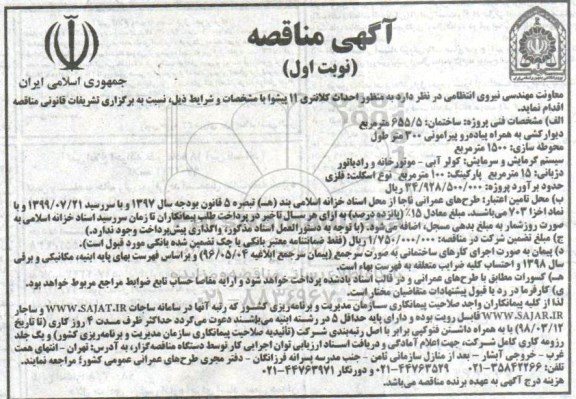 آگهی مناقصه
(نوبت اول)
جمهوری اسلامی ایران
معاونت مهندسی نیروی انتظامی در نظر دارد به منظور احداث کلانتری ۱۱ پیشوا با مشخصات و شرایط ذیل، نسبت به برگزاری تشریفات قانونی مناقصه
اقدام نماید.
الف) مشخصات فنی پروژه: ساختمان: ۶۵۵/۵ مترمربع
دیوارکشی به همراه پیاده‌رو پیرامونی ۳۰۰ متر طول
محوطه سازی: ۱۵۰۰ مترمربع
سیستم گرمایش و سرمایش: کولر آبی - موتورخانه و رادیاتور
دژبانی: ۱۵ مترمربع پارکینگ: ۱۰۰ مترمربع نوع اسکلت: فلزی
حدود برآورد پروژه: ۳۴/۹۲۸/۵۰۰/۰۰۰ ریال
ب) محل تامین اعتبار: طرح‌های عمرانی ناجا از محل اسناد خزانه اسلامی بند (هـ) تبصره ۵ قانون بودجه سال ۱۳۹۷ و با سررسید ۱۳۹۹/۰۷/۲۱ و با
نماد اخزا ۷۰۳ می‌باشند. مبلغ معادل ۱۵٪ (پانزده درصد) به ازای هر سال تاخیر در پرداخت طلب پیمانکاران تا زمان سررسید اسناد خزانه اسلامی به
صورت روزشمار به مبلغ بدهی مسجل، اضافه می‌شود. (با توجه به دستورالعمل اسناد مذکور، واگذاری پیش‌پرداخت وجود ندارد.)
ج) مبلغ تضمین شرکت در مناقصه: ۱/۷۵۰/۰۰۰/۰۰۰ ریال (فقط ضمانتنامه معتبر بانکی یا چک تضمین شده بانکی مورد قبول است).
د) پیمان به صورت اجرای کارهای ساختمانی به صورت سرجمع (پیمان سرجمع ابلاغیه ۹۶/۰۵/۰۴) و براساس فهرست بهای پایه ابنیه، مکانیکی و برقی
سال ۱۳۹۸ و احتساب کلیه ضرایب متعلقه به فهرست بهاء است.
هـ) کسورات مطابق با طرح‌های عمرانی و در قالب اسناد یادشده پرداخت خواهد شد و ارایه مفاصا حساب تابع ضوابط مراجع مربوط خواهد بود.
ی) کارفرما در رد یا قبول پیشنهادات متقاضیان مختار است.
لذا از کلیه پیمانکاران واجد صلاحیت پیمانکاری سازمان مدیریت و برنامه‌ریزی کشور که رتبه آنها در سامانه ساجات WWW.SAJAT.IR و ساجار
WWW.SAJAR.IR قابل رویت بوده و دارای پایه حداقل ۵ در رسته ابنیه می‌باشند دعوت می‌گردد حداکثر ظرف مدت ۴ روز کاری (تا تاریخ
۹۸/۰۳/۱۲) با به همراه داشتن فتوکپی برابر با اصل رتبه‌بندی شرکت (تائیدیه صلاحیت پیمانکاری سازمان مدیریت و برنامه‌ریزی کشور) و یک جلد
رزومه کاری کامل شرکت، جهت اعلام آمادگی و دریافت اسناد ارزیابی توان اجرایی کار توسط دستگاه مناقصه‌گزار، به آدرس: تهران - انتهای همت
غرب - خروجی آبشار - بعد از منازل سازمانی ثامن - جنب مدرسه پسرانه فرزانگان - دفتر مجری طرح‌های عمرانی عمومی کشور؛ مراجعه نمایند.
تلفن: ۳۵۸۴۲۲۶۶-۰۲۱ ۴۴۷۶۳۵۲۹-۰۲۱ و دورنگار ۴۴۷۶۳۹۷۱-۰۲۱
هزینه درج آگهی به عهده برنده مناقصه می‌باشد.